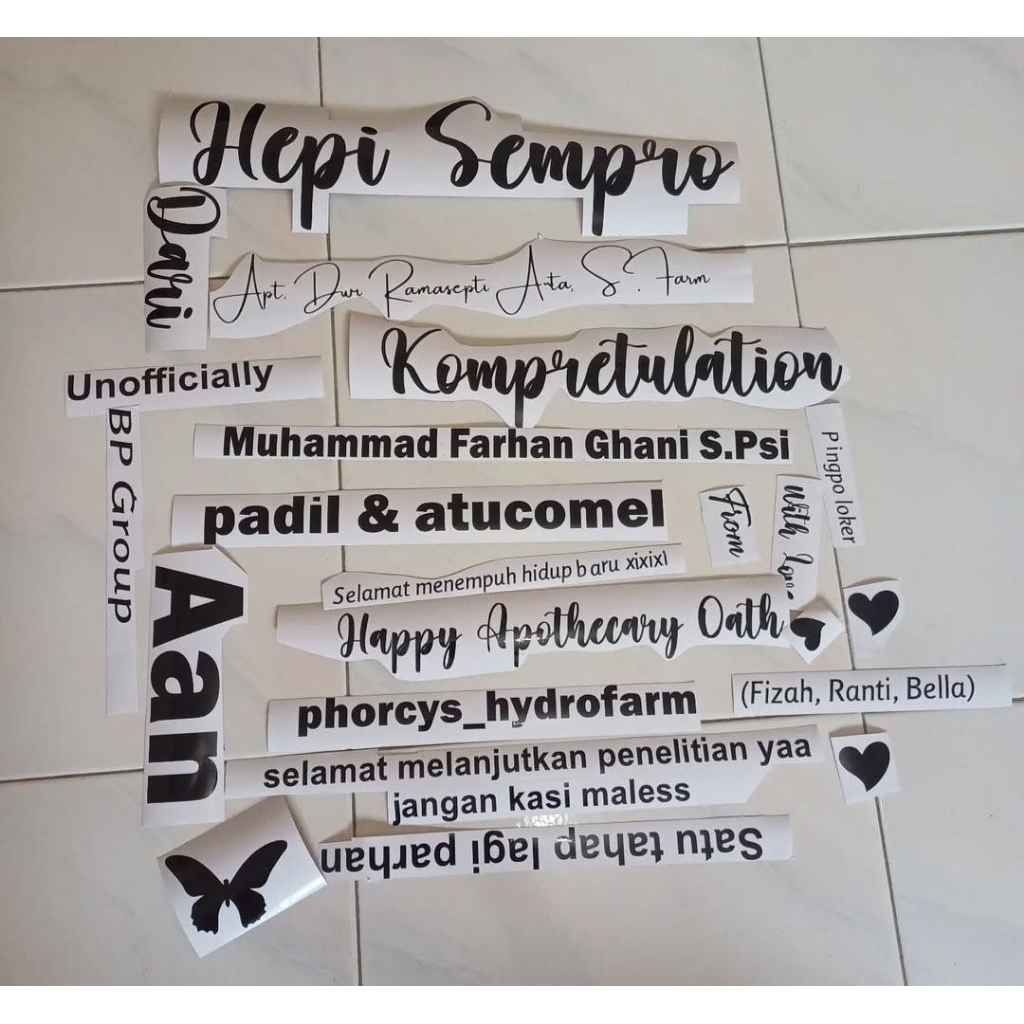 Hepi Sempro
Dari
Apt. Dwi Ramasepti Arta, S. Farm
Kompretulation
Unofficially
BP Group
Muhammad Farhan Ghani S.Psi
Pingpo loker
padil & atucomel
From
With Love
Aan
Selamat menempuh hidup baru xixixi
Happy Apothecary Oath
phorcys_hydrofarm
(Fizah, Ranti, Bella)
selamat melanjutkan penelitian yaa
jangan kasi maless
Satu tahap lagi parhan